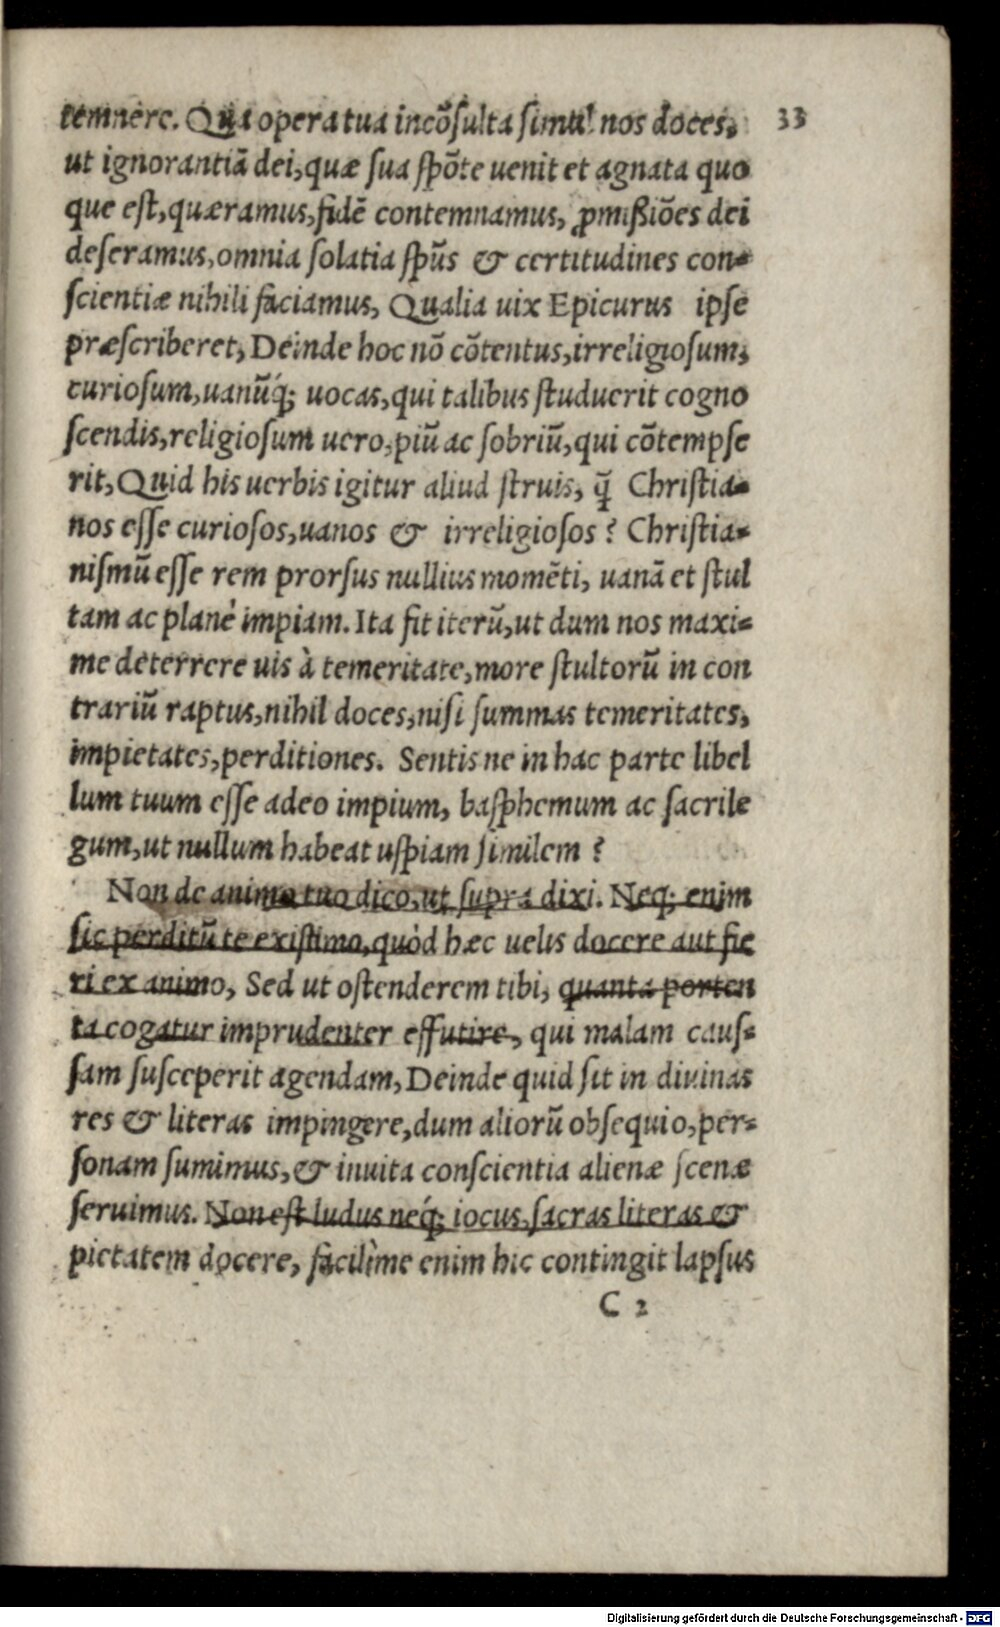 temnere. Qua opera tua incõsulta simul nos doces, 33
ut ignorantiã dei, quæ sua spõte uenit et agnata quo
que est, quæramus, fidẽ contemnamus, ꝓmißiões dei
deseramus, omnia solatia spũs & certitudines con-
scientiæ nihili faciamus, Qualia uix Epicurus ipse
præscriberet, Deinde hoc nõ cõtentus, irreligiosum,
curiosum, uanũq́; uocas, qui talibus studuerit cogno
scendis, religiosum uero, piũ ac sobriũ, qui cõtempse
rit, Quid his uerbis igitur aliud struis, q̃ Christia-
nos esse curiosos, uanos & irreligiosos? Christia-
nismũ esse rem prorsus nullius momẽti, uanã et stul
tam ac planè impiam. Ita fit iterũ, ut dum nos maxi-
me deterrere uis à temeritate, more stultorũ in con
trariũ raptus, nihil doces, nisi summas temeritates,
impietates, perditiones. Sentis ne in hac parte libel
lum tuum esse adeo impium, basphemum ac sacrile
gum, ut nullum habeat uspiam similem?
Non de animo tuo dico, ut supra dixi. Neq; enim
sic perditũ te existimo, quòd hæc uelis docere aut fie
ri ex animo, Sed ut ostenderem tibi, quanta porten
ta cogatur imprudenter effutire, qui malam caus-
sam susceperit agendam, Deinde quid sit in diuinas
res & literas impingere, dum aliorũ obsequio, per-
sonam sumimus, & inuita conscientia alienæ scenæ
seruimus. Non est ludus neq́; iocus, sacras literas &
pietatem docere, facilìme enim hic contingit lapsus
C 2
Digitalisierung gefördert durch die Deutsche Forschungsgemeinschaft - DFG